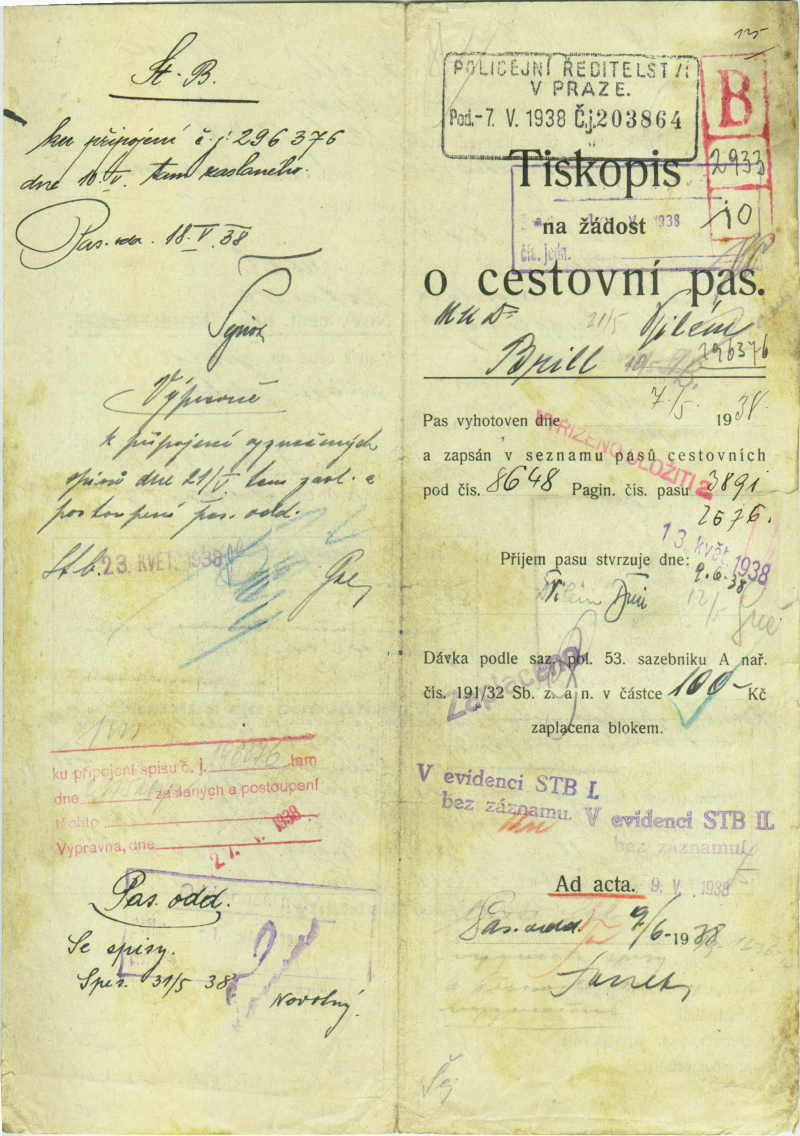 St. B.
ku připojení č. j. 296376
dne 10. V. tam zaslaného.
Pas. odd. 18. V. 38
Výpravně
k připojení vyznačených
spisů dne 21/V. tam zasl. a
postoupení pas. odd.
St b. 23. KVĚT. 1938
ku připojení spisu č. j. tam
dne zaslaných a postoupení
těchto
Výpravna, dne 21. V. 1938
Pas. odd.
Se spisy.
31/5 38
Novotný.
POLICEJNÍ ŘEDITELSTVÍ
V PRAZE.
Pod. -7. V. 1938 Č.j. 203864
B
2933
10
Tiskopis
1938
na žádost
čís. jedn.
o cestovní pas.
MUDr
21/5 Vilém
Brill 296376
7./5
Pas vyhotoven dne 1938.
VYŘÍZENO ULOŽITI 2
a zapsán v seznamu pasů cestovních
pod čís. 8648 Pagin. čís. pasu 3891
2676.
13. květ. 1938
Příjem pasu stvrzuje dne: 9. 6. 38
Vilém Brill
Dávka podle saz. pol. 53. sazebníku A nař.
čís. 191/32 Sb. z. a n. v částce 100- Kč
Zaplaceno
zaplacena blokem.
V evidenci STB I.
bez záznamu. V evidenci STB II.
bez záznamu
Ad acta. 9. V. 1938
Pas. odd. 9/6-1938